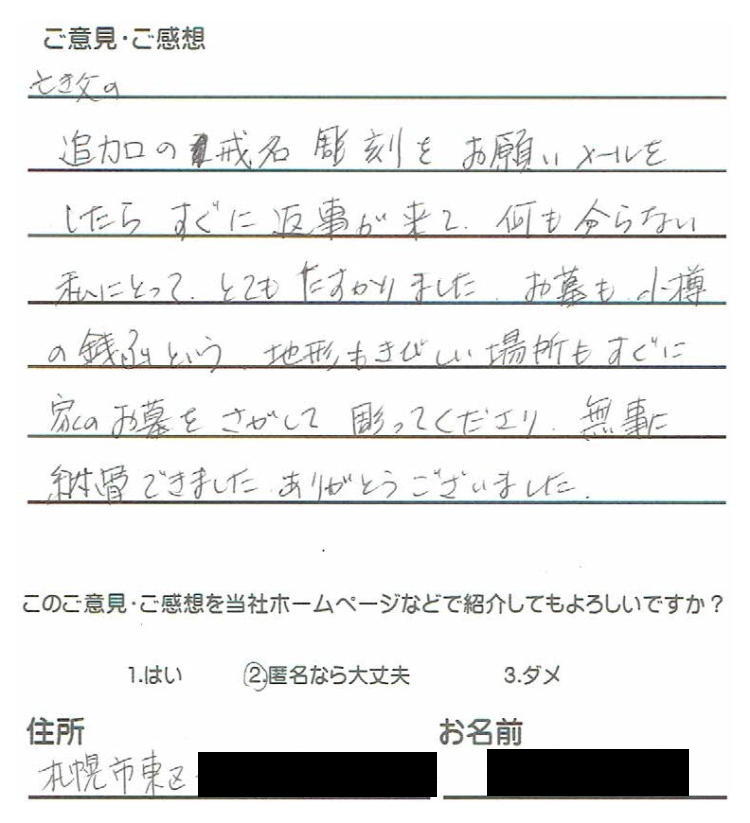 ご意見・ご感想
亡き父の
追加の戒名彫刻をお願いメールを
したらすぐに返事が来て、何も分らない
私にとって、とてもたすかりました。お墓も、小樽
の銭函という、地形もきびしい場所もすぐに
家のお墓をさがして彫ってくださり、無事に
納骨できました。ありがとうございました。
このご意見・ご感想を当社ホームページなどで紹介してもよろしいですか？
1.はい 2.匿名なら大丈夫 3.ダメ
住所 お名前
札幌市東区